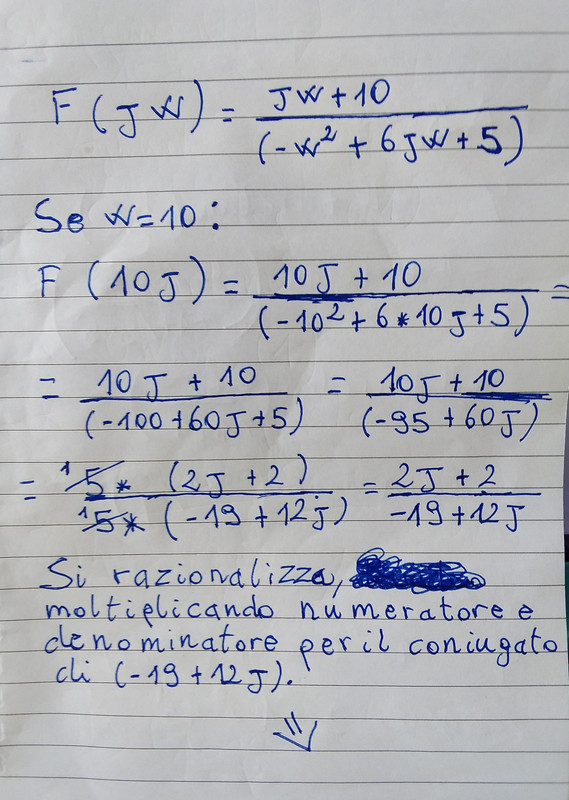 F(jw) = jw+10 / (-w² + 6jw+5)
Se w=10:
F(10j) = 10j + 10 / (-10² + 6*10j+5) =
= 10j + 10 / (-100+60j+5) = 10j+10 / (-95+60j)
= ¹5* (2j+2) / ¹5* (-19+12j) = 2j+2 / -19+12j
Si razionalizza,
moltiplicando numeratore e
denominatore per il coniugato
di (-19+12j).
⇓